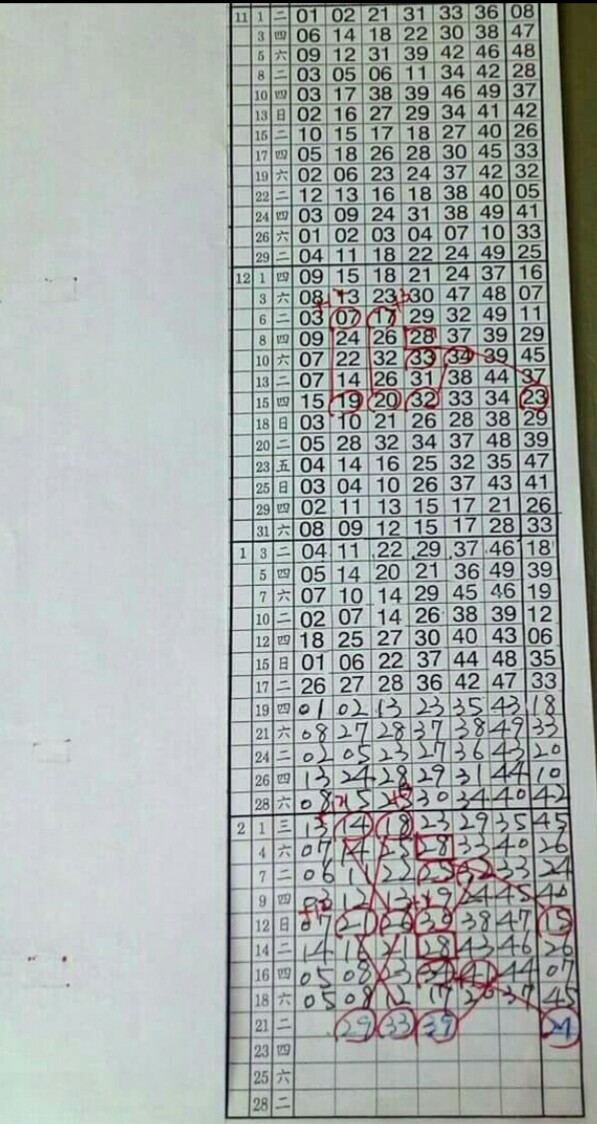 11 1 二 01 02 21 31 33 36 08
3 四 06 14 18 22 30 38 47
5 六 09 12 31 39 42 46 48
8 二 03 05 06 11 34 42 28
10 四 03 17 38 39 46 49 37
13 日 02 16 27 29 34 41 42
15 二 10 15 17 18 27 40 26
17 四 05 18 26 28 30 45 33
19 六 02 06 23 24 37 42 32
22 二 12 13 16 18 38 40 05
24 四 03 09 24 31 38 49 41
26 六 01 02 03 04 07 10 33
29 二 04 11 18 22 24 49 25
12 1 四 09 15 18 21 24 37 16
3 六 08 13 23 30 47 48 07
6 二 03 07 17 29 32 49 11
8 四 09 24 26 28 37 39 29
10 六 07 22 32 33 34 39 45
13 二 07 14 26 31 38 44 37
15 四 15 19 20 32 33 34 23
18 日 03 10 21 26 28 38 29
20 二 05 28 32 34 37 48 39
23 五 04 14 16 25 32 35 47
25 日 03 04 10 26 37 43 41
29 四 02 11 13 15 17 21 26
31 六 08 09 12 15 17 28 33
1 3 二 04 11 22 29 37 46 18
5 四 05 14 20 21 36 49 39
7 六 07 10 14 29 45 46 19
10 二 02 07 14 26 38 39 12
12 四 18 25 27 30 40 43 06
15 日 01 06 22 37 44 48 35
17 二 26 27 28 36 42 47 33
19 四 01 02 13 23 35 43 18
21 六 08 27 28 37 38 49 33
24 二 02 05 23 27 36 43 20
26 四 13 24 28 29 31 44 10
28 六 08 15 25 30 34 40 42
2 1 三 13 14 18 23 29 35 45
4 六 07 14 25 28 33 40 26
7 二 06 11 22 25 32 33 24
9 四 03 12 13 19 24 45 40
12 日 07 21 26 30 38 47 15
14 二 14 16 21 28 43 46 26
16 四 05 08 23 34 41 44 07
18 六 05 08 12 17 37 45
21 二 29 33 39 24
23 四
25 六
28 二